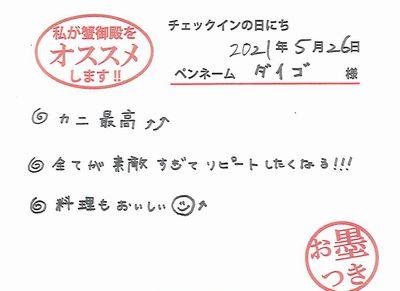 私が蟹御殿を
オススメ
します!!
チェックインの日にち
2021年5月26日
ペンネーム ダイゴ 様
カニ 最高↑↑
全てが素敵すぎてリピートしたくなる!!!
料理もおいしい☺↑
お墨
つき